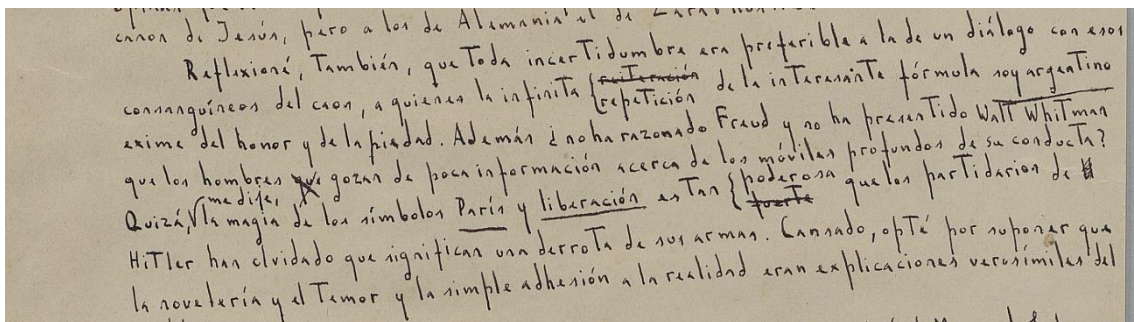 canon de Jesús, pero a los de Alemania el de Zarathustra
Reflexioné, también, que toda incertidumbre era preferible a la de un diálogo con esos
consanguíneos del caos, a quienes la infinita { reiteración
repetición de la interesante fórmula soy argentino
exime del honor y de la piedad. Además ¿no ha razonado Freud y no ha presentido Walt Whitman
que los hombres que gozan de poca información acerca de los móviles profundos de su conducta?
Quizá, me dije, la magia de los símbolos París y liberación es tan { poderosa
fuerte que los partidarios de
Hitler han olvidado que significan una derrota de sus armas. Cansado, opté por suponer que
la novelería y el temor y la simple adhesión a la realidad eran explicaciones verosímiles del